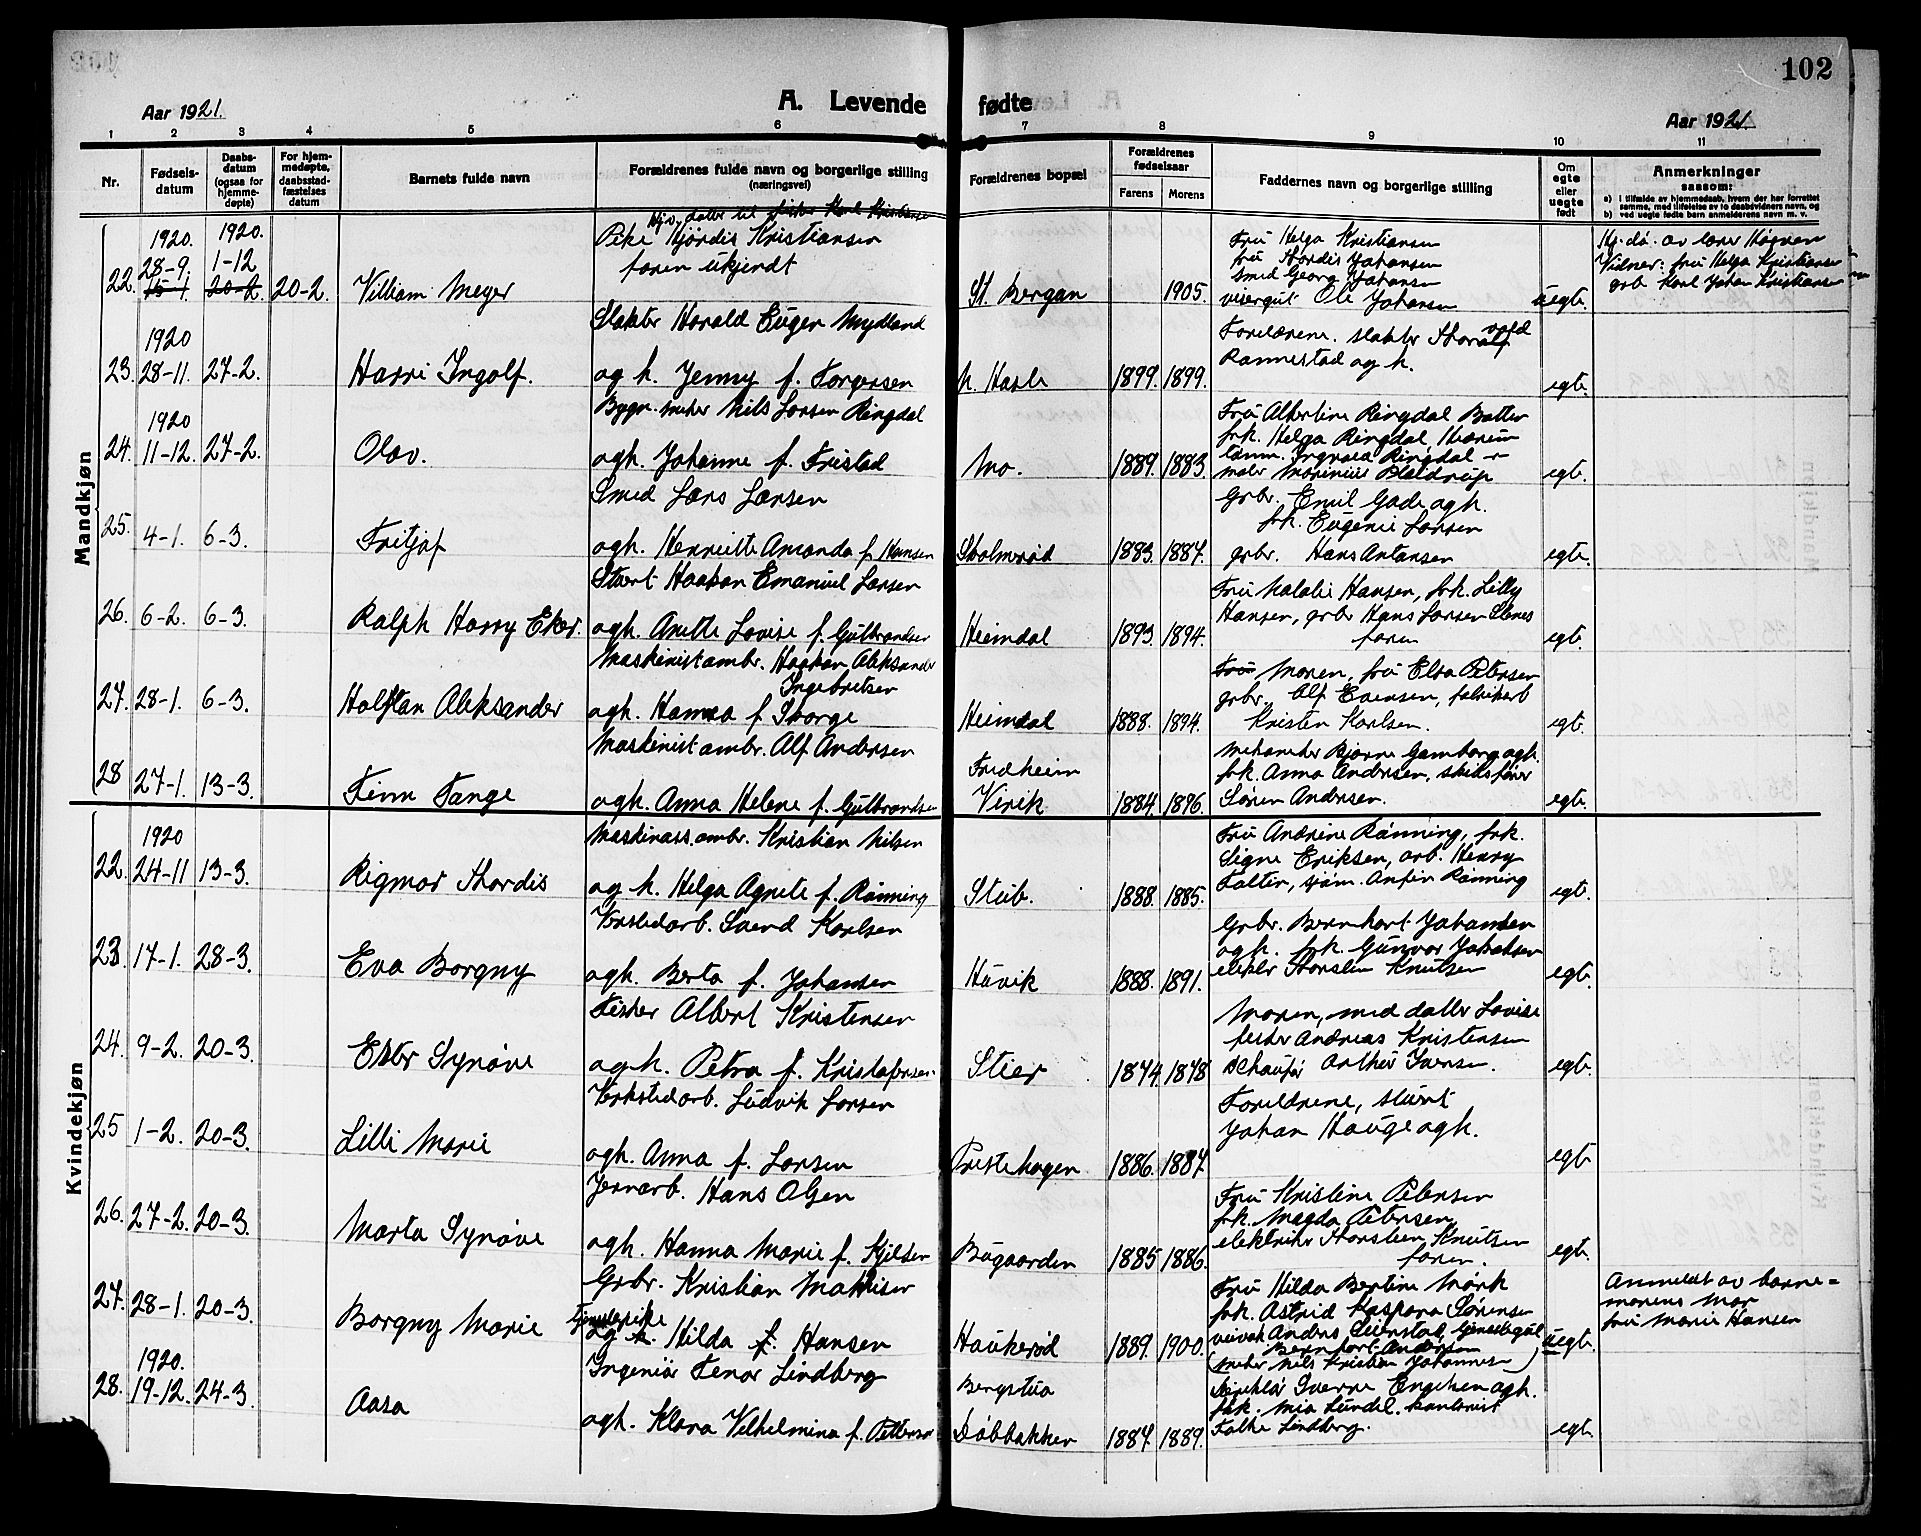 102
Aar 1921.
A. Levende fødte
Aar 1921.
1 2 3 4 5 6 7 8 9 10 11
Nr.
Fødsels-
datum
Daabs-
datum
(ogsaa for
hjemme-
døpte)
For hjem-
medøpte,
daabsstad-
fæstelses
datum
Barnets fulde navn
Forældrenes fulde navn og borgerlige stilling
(næringsvei)
Forældrenes bopæl
Forældrenes
fødselsaar
Farens Morens
Faddernes navn og borgerlige stilling
Om
egte
eller
uegte
født
Anmerkninger
saasom:
a) i tilfælde av hjemmedaab, hvem der har forrettet
samme, med tilføielse av to daabsvidners navn, og
b) ved uegte fødte barn anmelderens navn m. v.
Mandkjøn
22. 1920. 28-9. 15-1 1920. 1-12 20-2. 20-2. William Meyer
datter til fisker Karl Kristiansen
Pike Hjørdis Kristiansen
faren ukjendt
St. Bergan 1905.
Fru Helga Kristiansen
fru Hordis Johansen
smed Georg Johansen
visergut Ole Johansen
uegte.
Hj. dø. av lærer Høgnen
Vidner: fru Helga Kristiansen
grb. Karl Johan Kristiansen
23. 1920 28-11. 27-2. Harri Ingolf.
Slakter Harald Eugen Mydland
og h. Jenny f. Torgersen
n. Hasle 1899. 1899.
Forældrene. slakter Thorvald
Rannestad og h.
egte.
24. 1920 11-12. 27-2. Olav.
Bygn. Nils Larsen Ringdal
ogh. Johanne f. Fristad
Mo. 1889. 1883.
Fru Albertine Ringdal
frk. Helga Ringdal,
Ringdal
maler
egte.
25. 4-1. 6-3. Fritjof
Smed Lars Larsen
ogh. Henriette Amanda f. Hansen
Skolmrød 1883. 1887.
Grbr. Emil Gade ogh.
frk. Eugenie Larsen
grbr. Hans Antonsen
egte.
26. 6-2. 6-3. Ralph Harry Eker.
Stuert Haakon Emanuel Larsen
ogh. Anette Lovise f. Gulbrandsen
Heimdal 1893 1894.
Fru Natalie Hansen, frk. Lilly
Hansen, grbr Hans Larsen
faren
egte.
27. 28-1. 6-3. Halfdan Aleksander
Maskinistambr. Haakon Aleksander
Ingebretsen
ogh. Hanna f. Skorge
Heimdal 1888. 1894.
Fru Moren, fru Elsa Petersen
grbr. Alf Evensen, fabrikarb
Kristen Karlsen.
egte.
28 27-1. 13-3. Finn Tange
Maskinist ambr. Alf Andersen
ogh. Anna Helene f. Gulbrandsen
Fredheim
Virik 1884. 1896.
Mekaniker Bjarne Gamborg ogh.
frk. Anna Andersen, skibsfører
Søren Andersen.
egte.
Kvindekjøn
22. 1920 24-11 13-3. Rigmor Thordis
Maskinass.ambr. Kristian Nilsen
og h. Helga Agnete f. Rønning
Stub. 1888. 1885.
Fru Andrine Rønning, frk.
Signe Eriksen, arb. Henry
Falter, sjøm. Anfin Rønning
egte.
23. 17-1. 28-3. Eva Borgny
Verkstedarb. Svend Karlsen
ogh. Berta f. Johansen
Huvik 1888. 1891.
Grbr. Bernhart Johansen
ogh. frk. Gunvor Jakobsen
elektr Thorstein Knutsen
egte.
24. 9-2. 20-3. Ester Synøve
Fisker Albert Kristensen
ogh. Petra f. Kristofersen.
Stier 1874. 1878
Moren, med datter Lovise
fisker Andreas Kristensen
schauffør Arthur Iversen.
egte.
25 1-2. 20-3. Lilli Marie
Verkstedarb. Ludvik Larsen
ogh. Anna f. Larsen
Prestehagen 1886. 1887.
Foreldrene, stuert
Johan Hauge ogh.
egte
26. 27-2. 20-3. Marta Synøve
Jernarb. Hans Olsen
ogh. Hanna Marie f. Kjeldsen
Bugaarden 1885 1886.
Fru Kristine Petersen
frk. Magda Petersen
elektriker Thorstein Knutsen
faren.
egte.
27. 28-1. 20-3. Borgny Marie
Grbr. Kristian Mathisen
Tjenestepike
og h. Hilda f. Hansen
Haukerød 1889. 1900.
Fru Hilda Bertine Mørk
frk. Astrid Kaspara Sørensen
Anders tjenestegut
Bernhart Andersen
(Nils Kristian Johannesen)
uegte.
Anmeldt av barne=
morens mor
fru Marie Hansen
28. 1920. 19-12. 24-3. Aasa
Ingeniør Tenor Lindberg
ogh. Klara Vilhelmina f. Petterson
Bergstua
Døbbakken 1884. 1889.
Direktør Sverre Engelsen ogh.
frk. Mia Lundel. kontorist
Falke Lindberg.
egte.